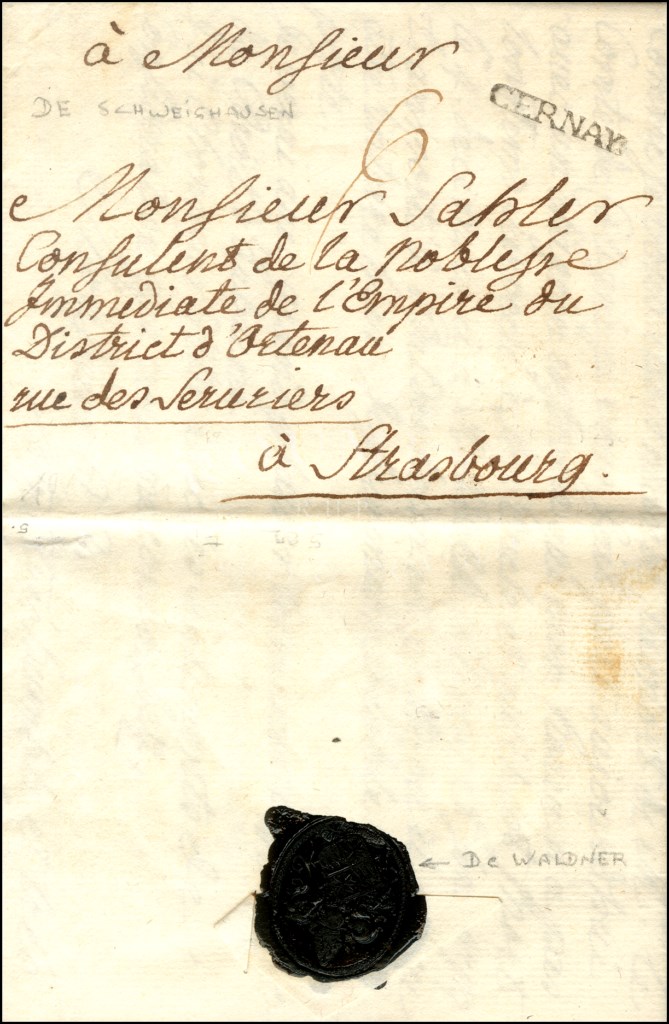 à Monsieur
DE SCHWEIGHAUSEN
CERNAY
6
Monsieur Sahler
Consulent de la Noblesse
Immediate de l'Empire du
District d'Ortenau
rue des Seruriers
à Strasbourg.
← De WALDNER